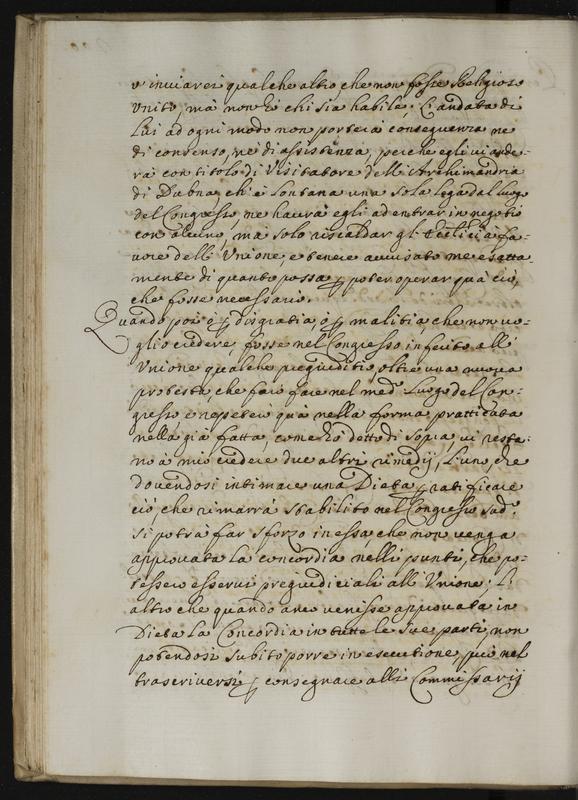 v'inviarei qualche altro che non fosse Religioso
Vnito, mà non hò chi sia habile; L'andata di
lui ad ogni modo non porterà consequenza ne
di consenso, ne di assistenza, perche egli vi ande-
rà con titolo di Visitatore dell'Archimandria
di Dubna, ch'è lontana una sola lega dal luogo
del Congresso, ne haurà egli ad entrar in negotio
con alcuno, mà solo riscaldar gl'Ecclici à fa-
uore dell'Vnione, e tenere auuisato me esatta
mente di quanto possa ꝑ poter operar quà ciò,
che fosse necessario.
Quando poi ò ꝑ disgratia, ò ꝑ malitia, che non vo-
glio credere, fosse nel Congresso inferito all'
Vnione qualche pregiuditio, oltre una nuova
protesta, che farò fare nel med.º luogo del Con-
gresso e ripeterò quà nella forma pratticata
nella già fatta, come hò detto di sopra, vi resta-
no à mio credere due altri rimedij, l'uno, che
dovendosi intimare una Dieta ꝑ ratificare
ciò, che rimarrà stabilito nel Congresso sud.º
si potrà far sforzo in essa, che non venga
approuata la concordia nelli punti, che po-
tessero esservi pregiudiciali all'Vnione; L'
altro che quando anco venisse approuata in
Dieta la Concordia in tutte le sue parti, non
potendosi subito porre in esecutione, mà nel
trascriversi ꝑ consegnare alli Commissarij